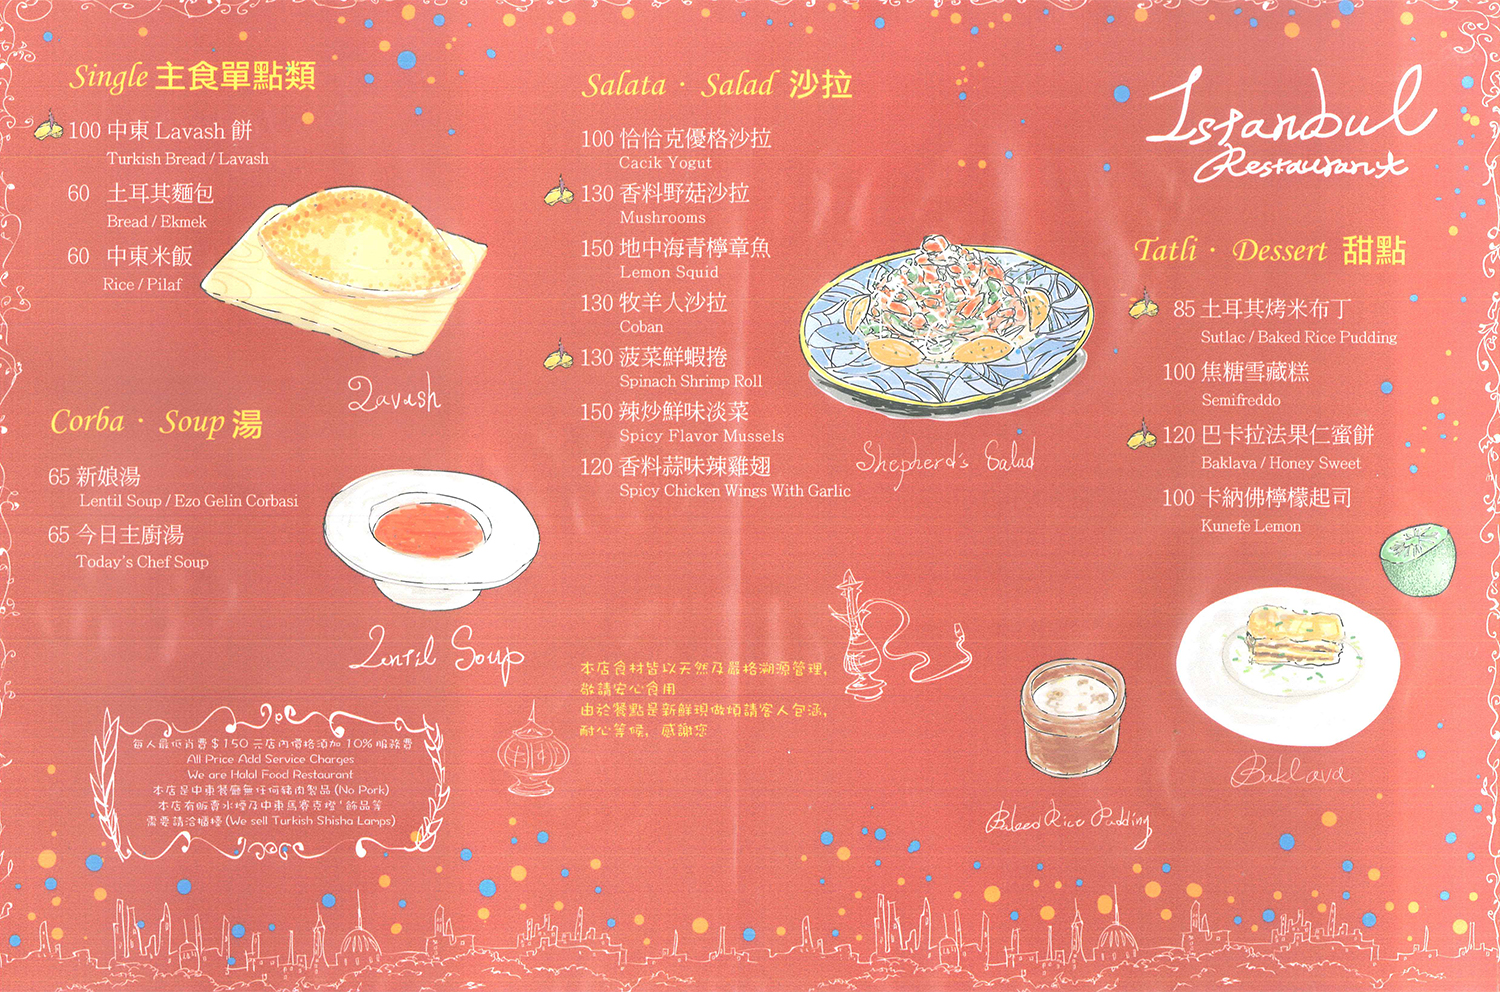 Single 主食單點類
100 中東 Lavash 餅
Turkish Bread / Lavash
60 土耳其麵包
Bread / Ekmek
60 中東米飯
Rice / Pilaf
Lavash
Corba · Soup 湯
65 新娘湯
Lentil Soup / Ezo Gelin Corbasi
65 今日主廚湯
Today's Chef Soup
Lentil Soup
每人最低消費$150元店內價格須加10%服務費
All Price Add Service Charges
We are Halal Food Restaurant
本店是中東餐廳無任何豬肉製品 (No Pork)
本店有販賣水煙及中東馬賽克燈,飾品等
需要請洽櫃檯 (We sell Turkish Shisha Lamps)
Salata · Salad 沙拉
100 恰恰克優格沙拉
Cacik Yogut
130 香料野菇沙拉
Mushrooms
150 地中海青檸章魚
Lemon Squid
130 牧羊人沙拉
Coban
130 菠菜鮮蝦捲
Spinach Shrimp Roll
150 辣炒鮮味淡菜
Spicy Flavor Mussels
120 香料蒜味辣雞翅
Spicy Chicken Wings With Garlic
Shepherd's Salad
本店食材皆以天然及嚴格溯源管理,
敬請安心食用
由於餐點是新鮮現做煩請客人包涵,
耐心等候, 感謝您
Istanbul
Restaurant
Tatli · Dessert 甜點
85 土耳其烤米布丁
Sutlac / Baked Rice Pudding
100 焦糖雪藏糕
Semifreddo
120 巴卡拉法果仁蜜餅
Baklava / Honey Sweet
100 卡納佛檸檬起司
Kunefe Lemon
Baklava
Baked Rice Pudding